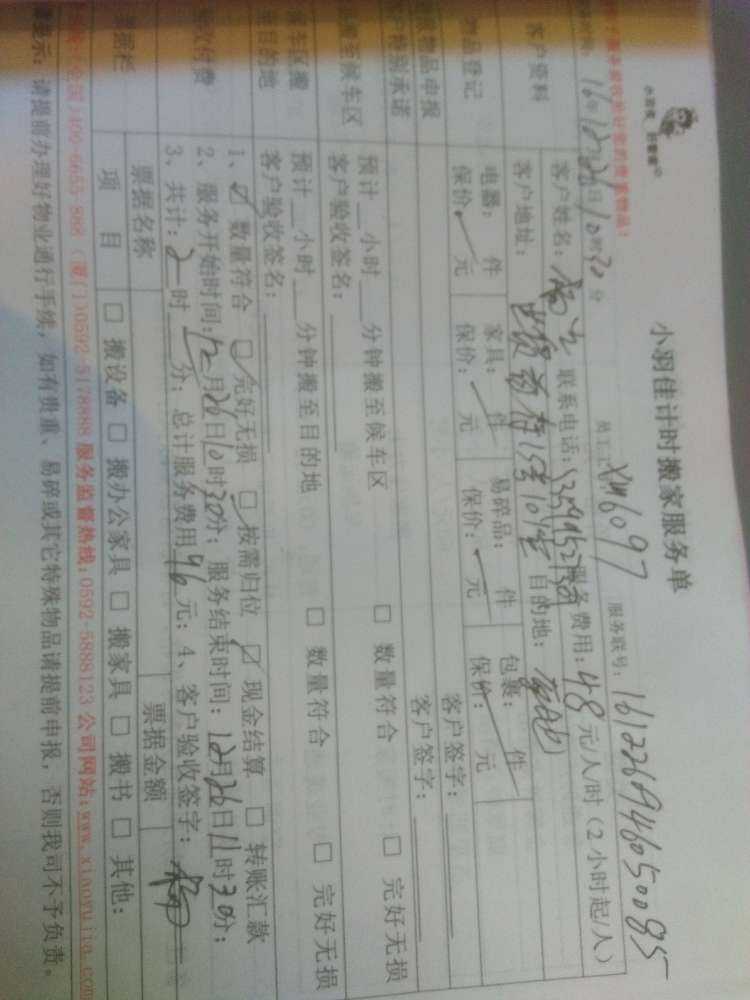 小羽佳计时搬家服务单
小羽佳
员工工 XM6097 服务联号: 1612269460500815
16年12月26日10时30分
客户资料
客户姓名: 联系电话: 服务费用: 48元/人/时(2小时起/人)
客户地址: 15号101室 目的地:
物品登记
电器: 件 家具: 件 易碎品: 件 包裹: 件
保价: 元 保价: 元 保价: 元 保价: 元
物品申报 客户签字:
客户特别承诺 客户签字:
搬至候车区
预计 小时 分钟搬至候车区 □ 数量符合 □ 完好无损
客户验收签名:
候车区搬至目的地
预计 小时 分钟搬至目的地 □ 数量符合 □ 完好无损
客户验收签名:
验收付费
1、☑ 数量符合 ☑ 完好无损 ☑ 按需归位 ☑ 现金结算 □ 转账汇款
2、服务开始时间:12月26日10时30分; 服务结束时间:12月26日11时30分;
3、共计: 2 时 分; 总计服务费用 96 元; 4、客户验收签字:
票据栏
票据名称 票据金额
项 目 □ 搬设备 □ 搬办公家具 □ 搬家具 □ 搬书 □ 其他:
(全国)400-6655-888 (厦门)0592-5178888 服务监督热线:0592-5888123 公司网站:www.xiaoyujia.com
提示: 请提前办理好物业通行手续, 如有贵重、易碎或其它特殊物品请提前申报, 否则我司不予负责。